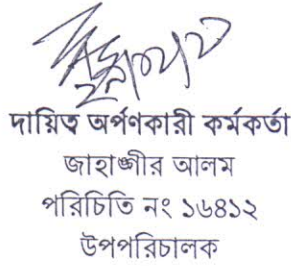 দায়িত্ব অর্পণকারী কর্মকর্তা
জাহাঙ্গীর আলম
পরিচিতি নং ১৬৪১২
উপপরিচালক